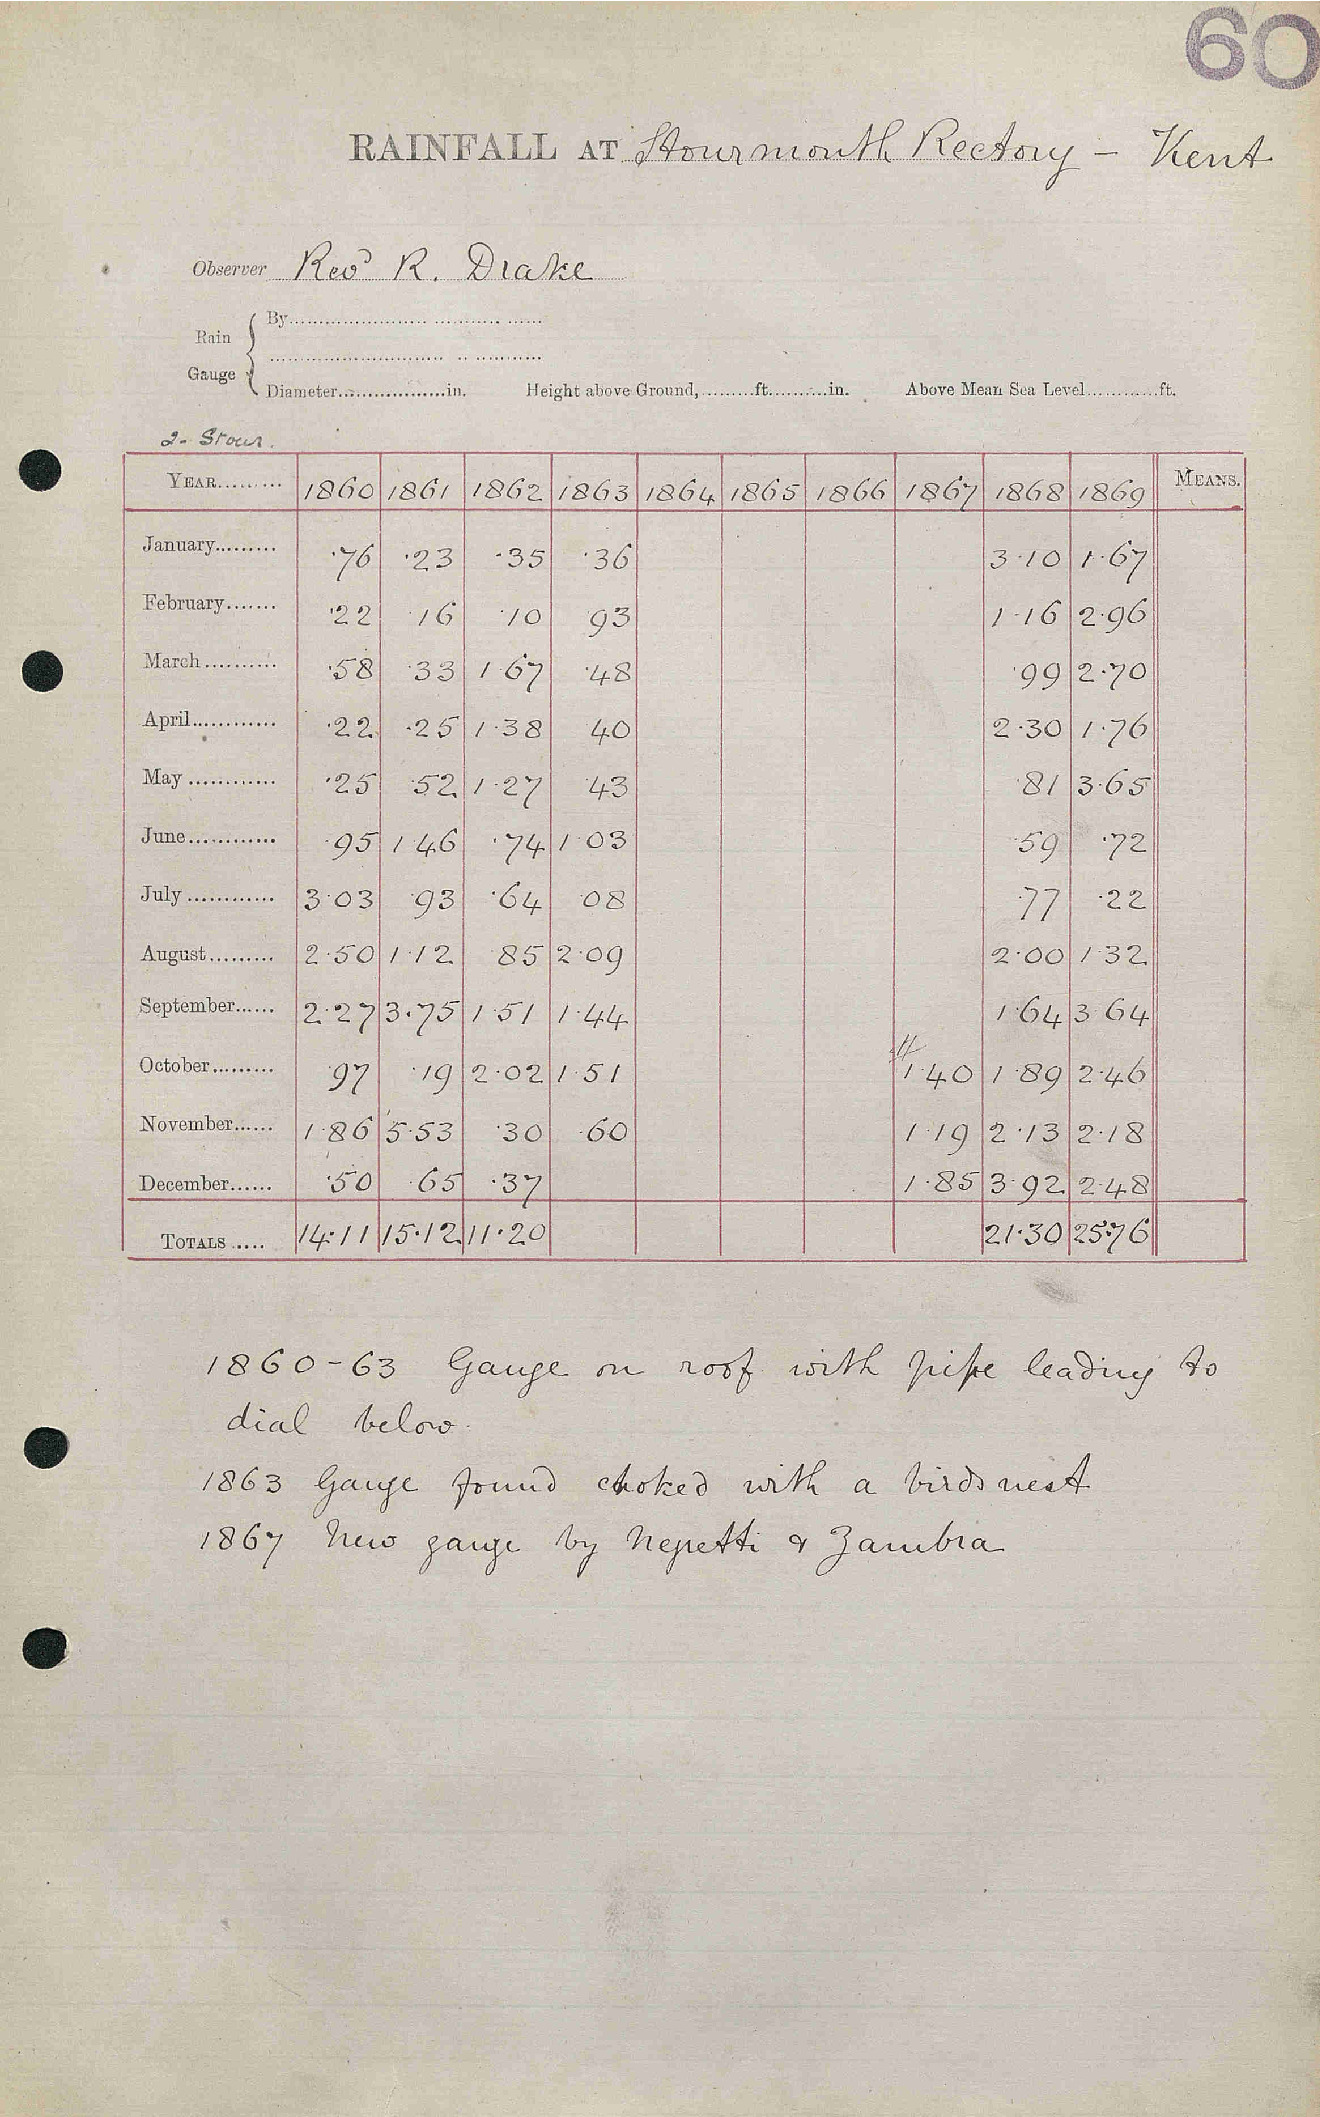 60
RAINFALL AT Stourmouth Rectory - Kent
Observer Revd R. Drake
Rain Gauge { By
Diameter in. Height above Ground, ft. in. Above Mean Sea Level ft.
2- Stour.
YEAR 1860 1861 1862 1863 1864 1865 1866 1867 1868 1869 MEANS.
January ·76 ·23 ·35 ·36 3·10 1·67
February ·22 ·16 ·10 93 1·16 2·96
March ·58 ·33 1·67 ·48 ·99 2·70
April ·22 ·25 1·38 40 2·30 1·76
May ·25 52 1·27 43 ·81 3·65
June ·95 1 46 ·74 1·03 ·59 ·72
July 3·03 ·93 ·64 08 ·77 ·22
August 2·50 1·12 85 2·09 2·00 1·32
September 2·27 3·75 1·51 1·44 1·64 3 64
October ·97 ·19 2·02 1·51 1·40 1·89 2·46
November 1·86 5·53 ·30 ·60 1·19 2·13 2·18
December ·50 ·65 ·37 1·85 3·92 2·48
TOTALS 14·11 15·12 11·20 21·30 25·76
1860-63 Gauge on roof with pipe leading to
dial below.
1863 Gauge found choked with a birds nest
1867 New gauge by Negretti & Zambra